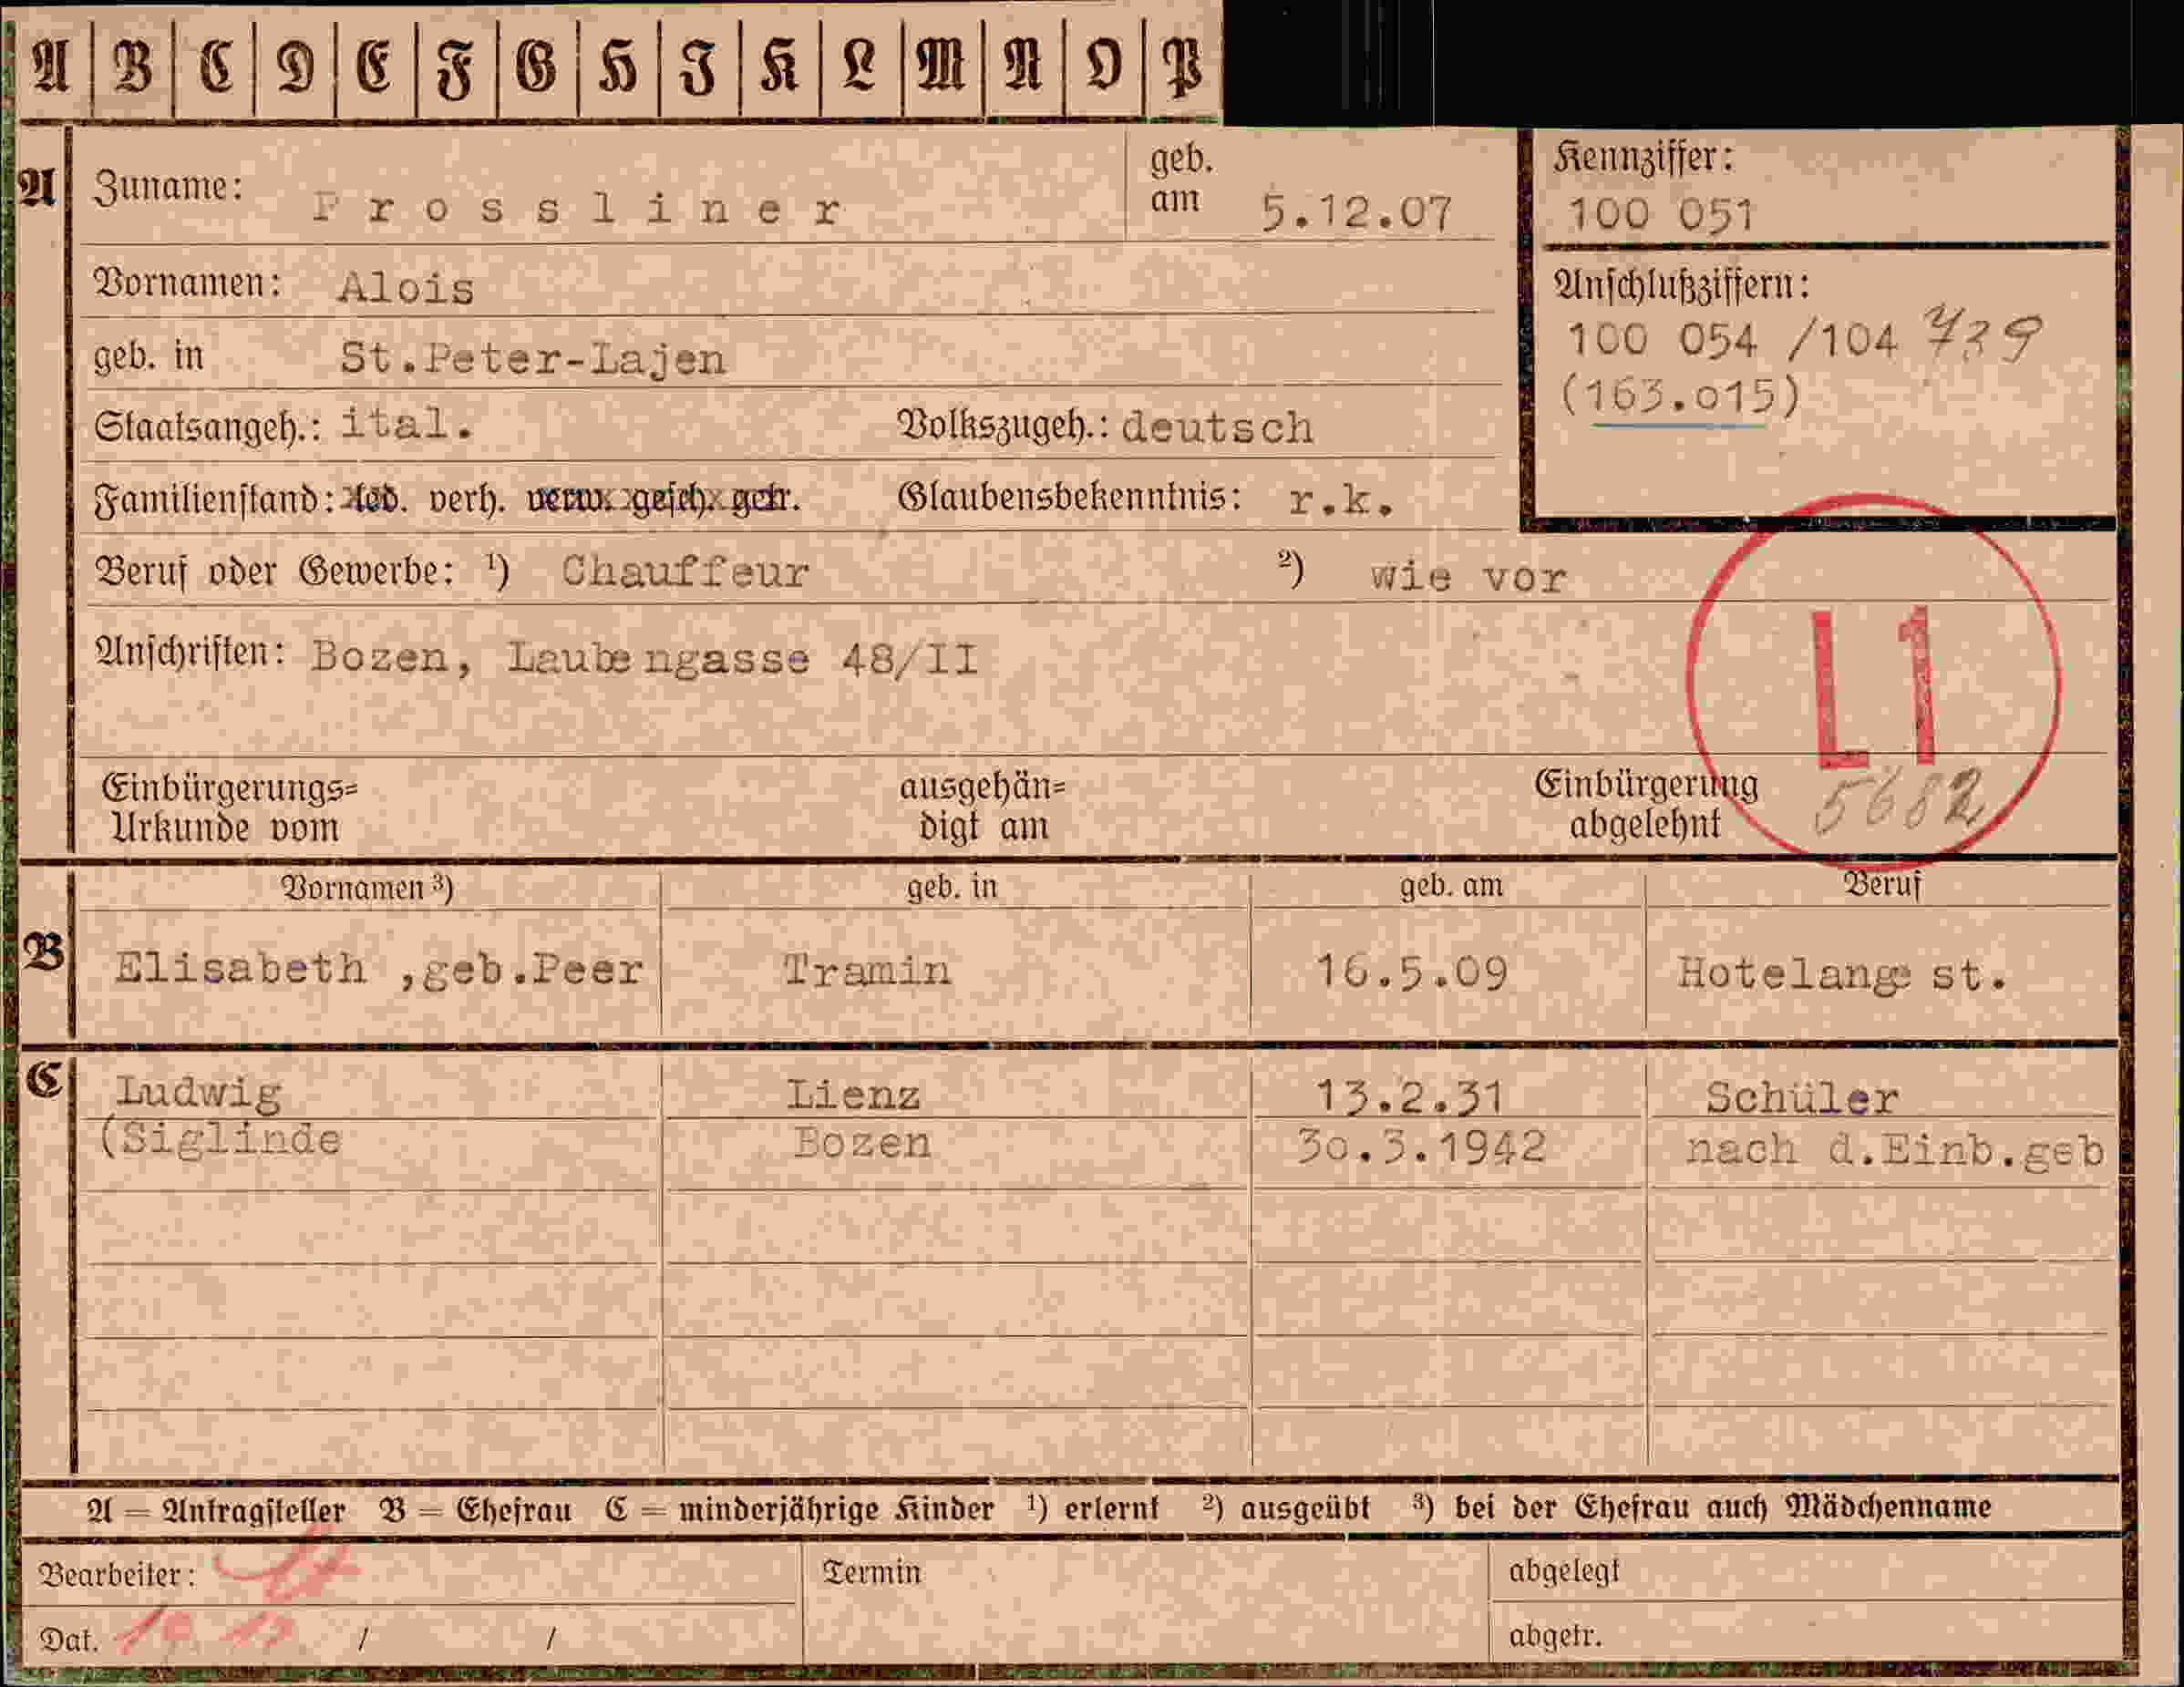 A B C D E F G H I K L M N O P
A Zuname: Prossliner geb. am 5.12.07
Kennziffer:
100 051
Vornamen: Alois
Anschlußziffern:
100 054 /104 739
(163.015)
geb. in St.Peter-Lajen
Staatsangeh.: ital. Volkszugeh.: deutsch
Familienstand: led. verh. verw. gesch. getr. Glaubensbekenntnis: r.k.
Beruf oder Gewerbe: ¹) Chauffeur ²) wie vor
Anschriften: Bozen, Laubengasse 48/II
L1
5682
Einbürgerungs= Urkunde vom ausgehän= digt am Einbürgerung abgelehnt
Vornamen ³) geb. in geb. am Beruf
B Elisabeth ,geb.Peer Tramin 16.5.09 Hotelangest.
C Ludwig Lienz 13.2.31 Schüler
(Siglinde Bozen 30.3.1942 nach d.Einb.geb
A = Antragsteller B = Ehefrau C = minderjährige Kinder ¹) erlernt ²) ausgeübt ³) bei der Ehefrau auch Mädchenname
Bearbeiter: Termin abgelegt
Dat. / / abgetr.